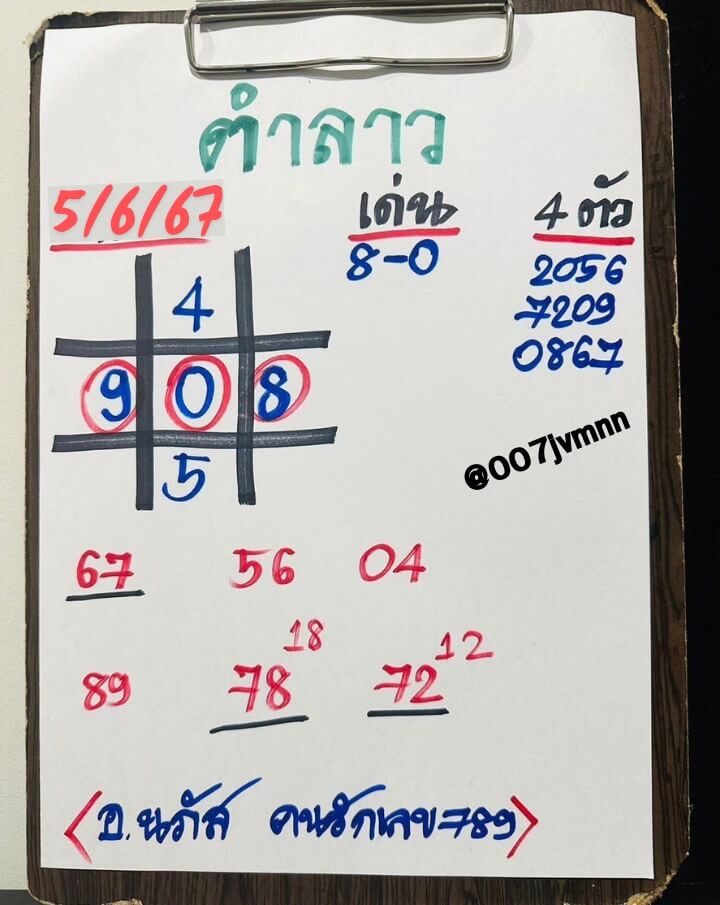 ตำลาว
5/6/67 เด่น 4 ตัว
8-0 2056
4 7209
0867
9 0 8
5
@007jvmnn
67 56 04
18 12
89 78 72
<อ.นภัส คนรักเลข789>